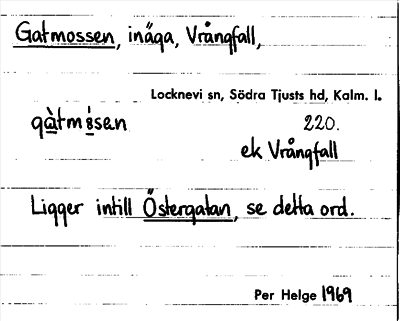 Gatmossen, inäga, Vrångfall,
Locknevi sn, Södra Tjusts hd, Kalm. l.
gàtmósen 220.
ek Vrångfall
Ligger intill Östergatan, se detta ord.
Per Helge 1969